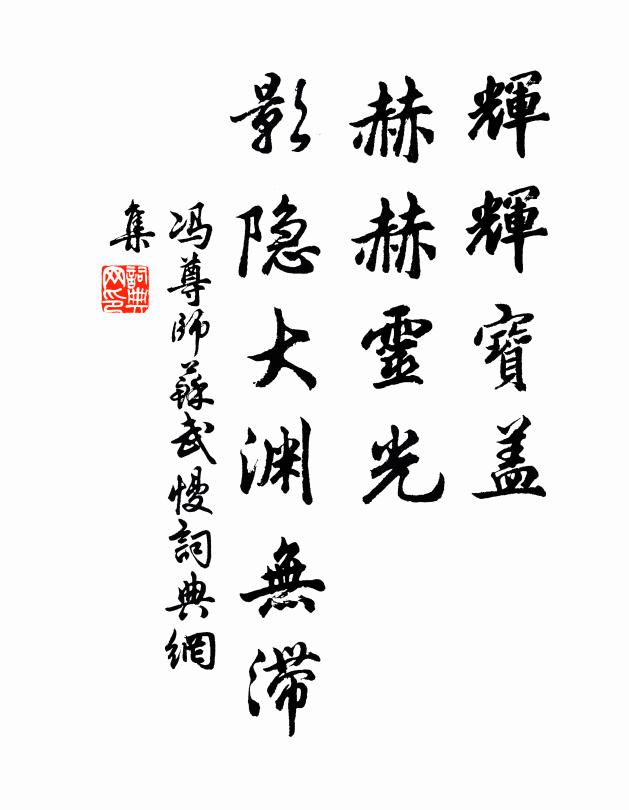 輝輝寶盖
赫赫靈光
影隐大渊無滞
冯尊師蘇武慢詞典網
集
詞典網印